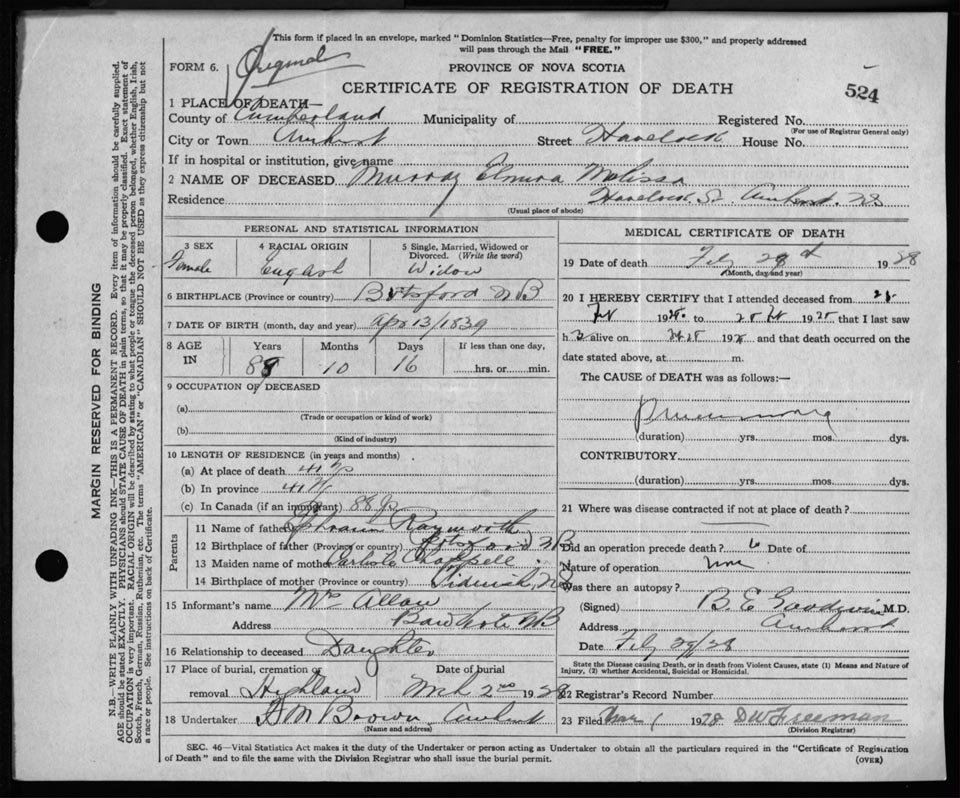 This form if placed in an envelope, marked "Dominion Statistics—Free, penalty for improper use $300," and properly addressed
will pass through the Mail "FREE."
FORM 6. Original
PROVINCE OF NOVA SCOTIA
CERTIFICATE OF REGISTRATION OF DEATH
524
1 PLACE OF DEATH—
County of Cumberland Municipality of Registered No.
(For use of Registrar General only)
City or Town Amherst Street Havelock House No.
If in hospital or institution, give name
2 NAME OF DECEASED Murray Elmira Melissa
Residence Havelock St. Amherst. NS
(Usual place of abode)
PERSONAL AND STATISTICAL INFORMATION
3 SEX
Female
4 RACIAL ORIGIN
English
5 Single, Married, Widowed or
Divorced. (Write the word)
Widow
6 BIRTHPLACE (Province or country) Botsford NB
7 DATE OF BIRTH (month, day and year) Apr 13/1839
8 AGE
IN
Years Months Days If less than one day,
88 10 16 hrs. or min.
9 OCCUPATION OF DECEASED
(a)
(Trade or occupation or kind of work)
(b)
(Kind of industry)
10 LENGTH OF RESIDENCE (in years and months)
(a) At place of death 41
(b) In province 41
(c) In Canada (if an immigrant) 88
Parents
11 Name of father Ephraim Raymworth
12 Birthplace of father (Province or country) Botsford NB
13 Maiden name of mother Chappell
14 Birthplace of mother (Province or country)
15 Informant's name Mrs Allan
Address NB
16 Relationship to deceased Daughter
17 Place of burial, cremation or
removal Highland
Date of burial
Mch 2nd 1928
18 Undertaker Brown, Amherst
(Name and address)
MEDICAL CERTIFICATE OF DEATH
19 Date of death Feb 1928
(Month, day and year)
20 I HEREBY CERTIFY that I attended deceased from
192 to 192 that I last saw
h alive on 192 and that death occurred on the
date stated above, at m.
The CAUSE of DEATH was as follows:—
Pneumonia
(duration) yrs. mos. dys.
CONTRIBUTORY
(duration) yrs. mos. dys.
21 Where was disease contracted if not at place of death?
Did an operation precede death? Date of
Nature of operation
Was there an autopsy?
(Signed) B. E. Goodwin M.D.
Address Amherst
Date Feb 29/28
State the Disease causing Death, or in death from Violent Causes, state (1) Means and Nature of
Injury, (2) whether Accidental, Suicidal or Homicidal.
22 Registrar's Record Number
23 Filed Mar 1 1928 D W Freeman
(Division Registrar)
SEC. 46—Vital Statistics Act makes it the duty of the Undertaker or person acting as Undertaker to obtain all the particulars required in the "Certificate of Registration
of Death" and to file the same with the Division Registrar who shall issue the burial permit.
(OVER)
MARGIN RESERVED FOR BINDING
N.B.—WRITE PLAINLY WITH UNFADING INK—THIS IS A PERMANENT RECORD. Every item of information should be carefully supplied.
AGE should be stated EXACTLY. PHYSICIANS should STATE CAUSE OF DEATH in plain terms, so that it may be properly classified. Exact statement of
OCCUPATION is very important. RACIAL ORIGIN will be described by stating to what people or tongue the deceased person belonged, whether English, Irish,
Scotch, French, German, Russian, Ruthenian, etc. The terms "AMERICAN" or "CANADIAN" SHOULD NOT BE USED as they express citizenship but not
a race or people. See instructions on back of Certificate.